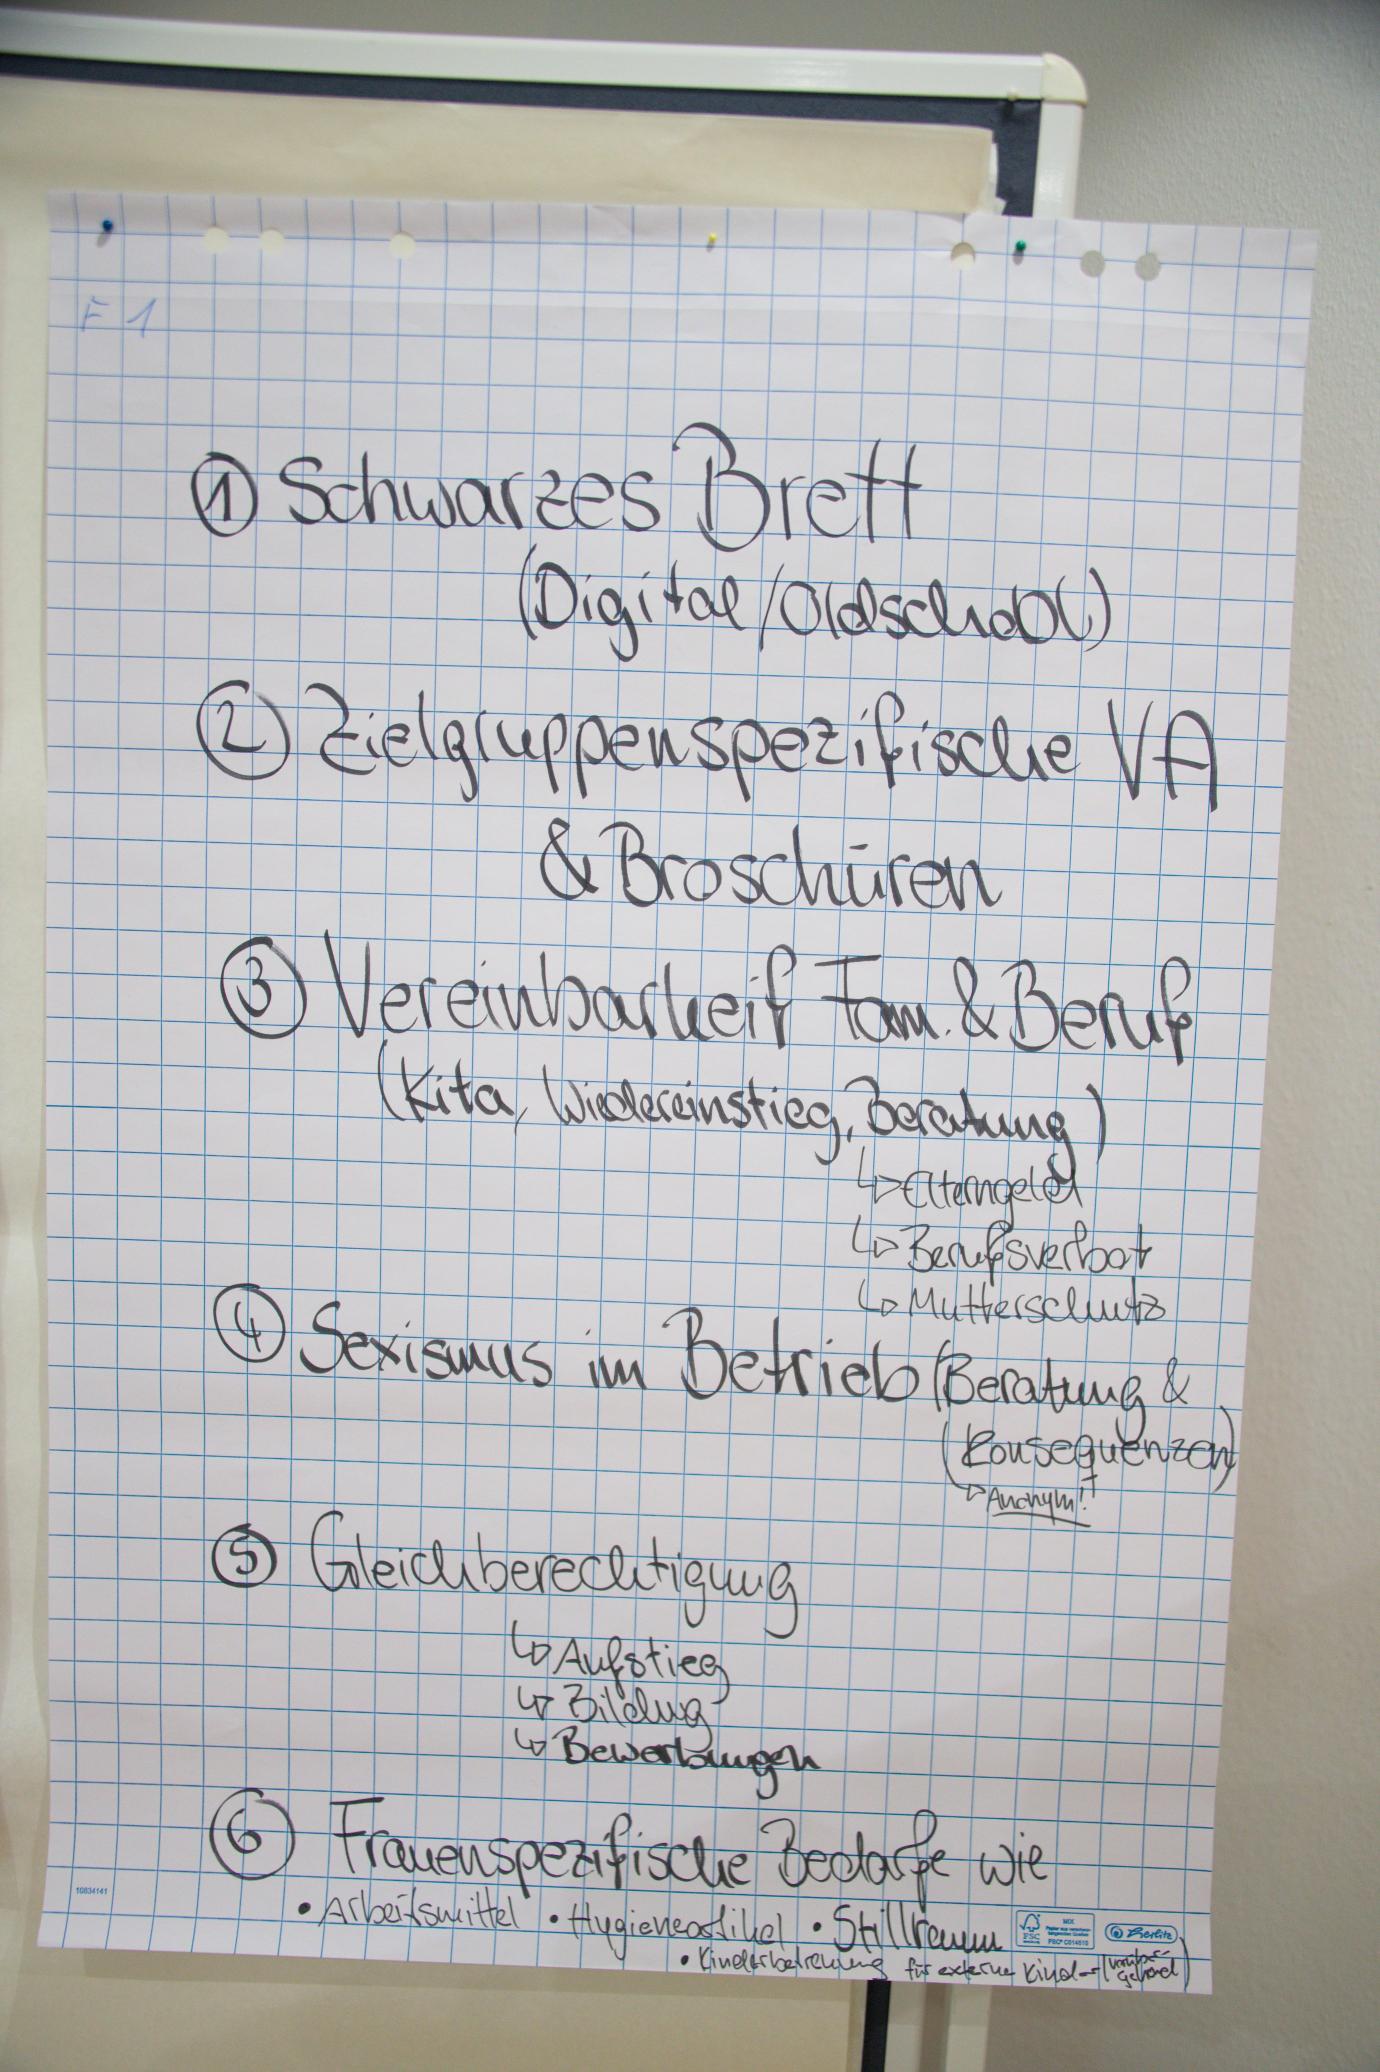 F 1
① Schwarzes Brett
(Digital/Oldschool)
② Zielgruppenspezifische VA
& Broschüren
③ Vereinbarkeit Fam. & Beruf
(Kita, Wiedereinstieg, Beratung)
↳ Elterngeld
↳ Berufsverbot
↳ Mutterschutz
④ Sexismus im Betrieb (Beratung &
(Konsequenzen)
↳ Anonym!
⑤ Gleichberechtigung
↳ Aufstieg
↳ Bildung
↳ Bewerbungen
⑥ Frauenspezifische Bedarfe wie
• Arbeitsmittel • Hygieneartikel • Stillraum
• Kinderbetreuung für externe Kinder (vorüber-
gehend)
10834141
FSC
MIX
FSC® C014510
Berlitz